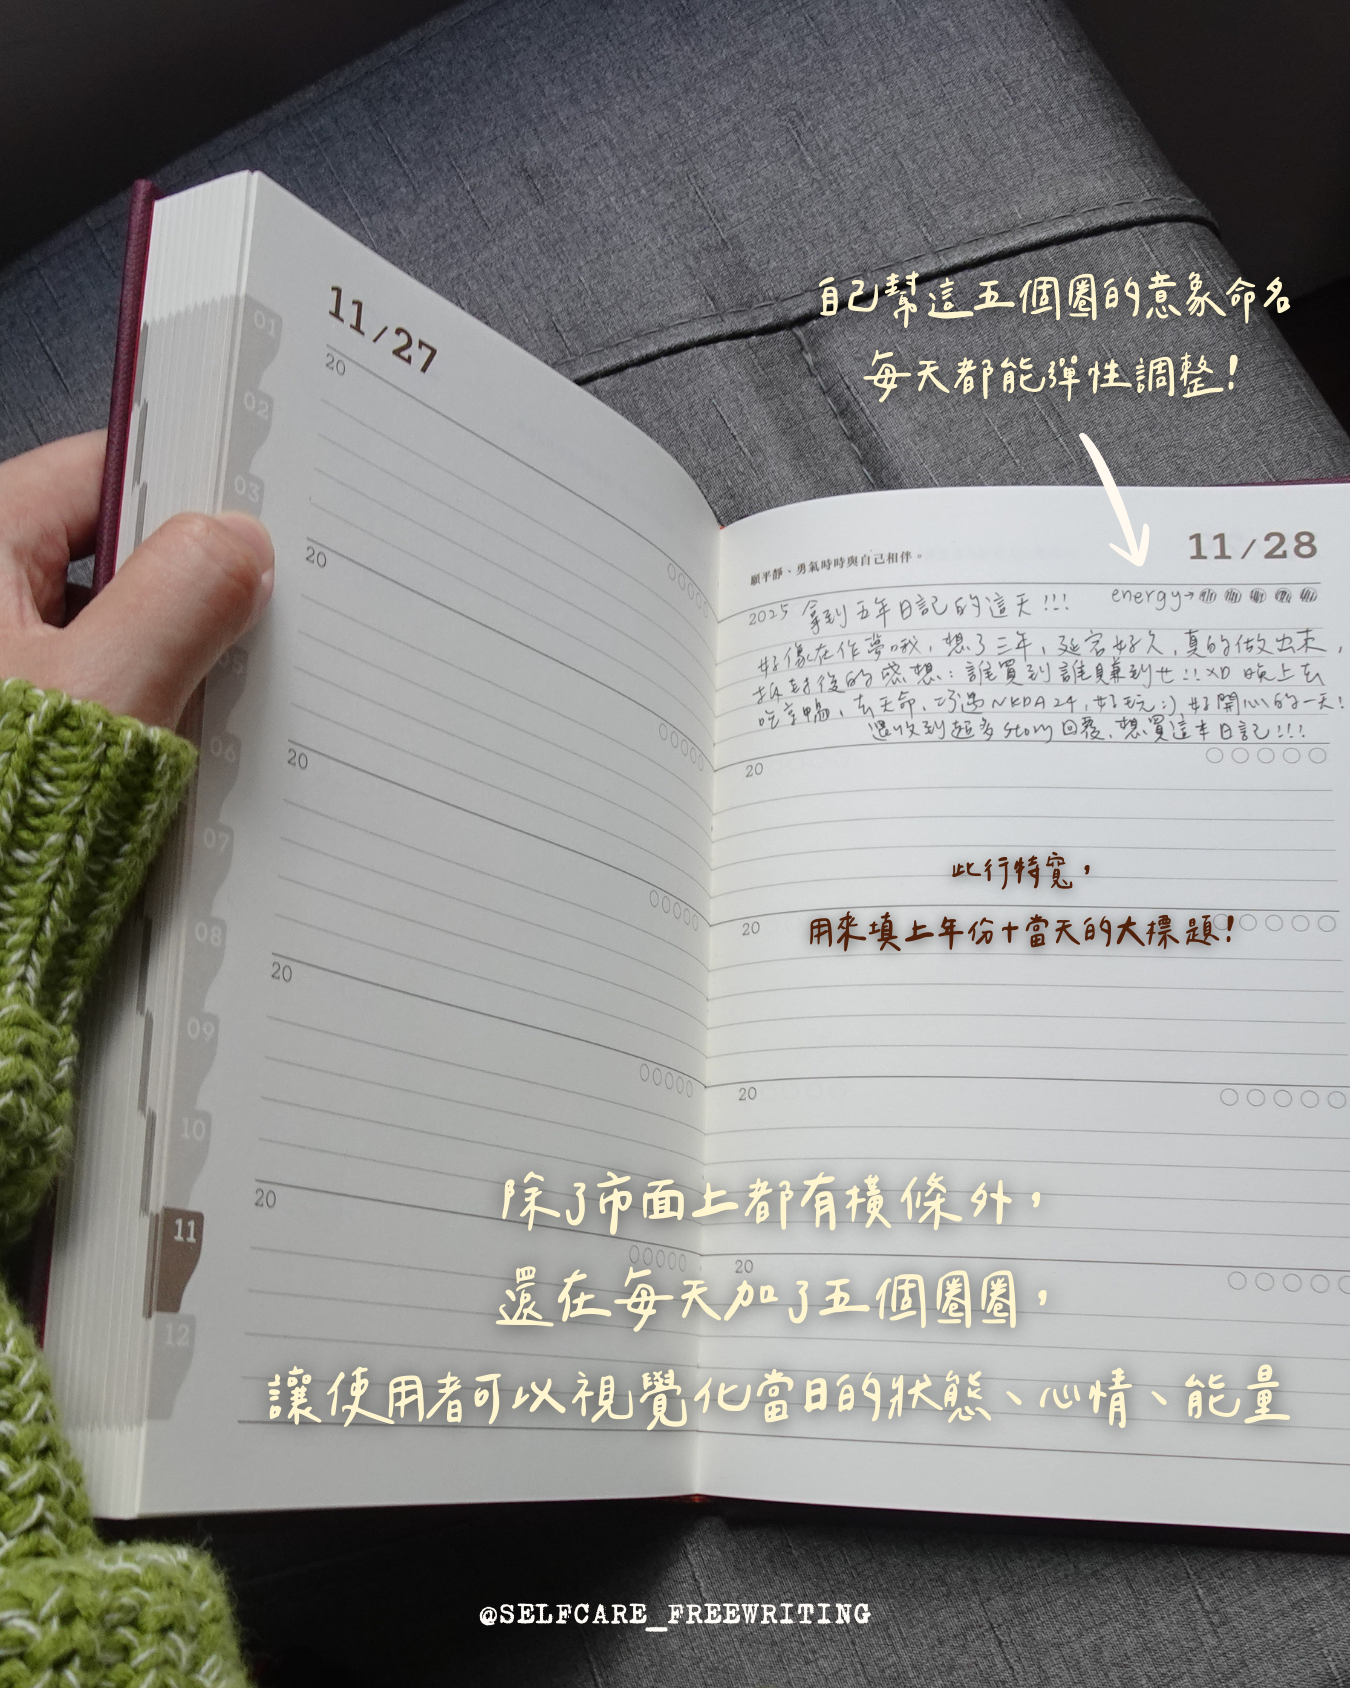 自己幫這五個圈的意象命名
每天都能彈性調整!
01
02
03
05
06
07
08
09
10
11
12
11/27
20
20
20
20
20
11/28
願平靜、勇氣時時與自己相伴。
energy→
2025 拿到五年日記的這天!!!
好像在作夢哦,想了三年,延宕好久,真的做出來,
拆封後的感想:誰買到誰賺到ㄝ!!XD 晚上去
吃烤鴨、去天命、巧遇NKDA24,好玩:) 好開心的一天!
還收到超多story回覆、想買這本日記!!!
20
此行特寬,
20
用來填上年份+當天的大標題!
20
20
除了市面上都有橫條外,
還在每天加了五個圈圈,
讓使用者可以視覺化當日的狀態、心情、能量
@SELFCARE_FREEWRITING